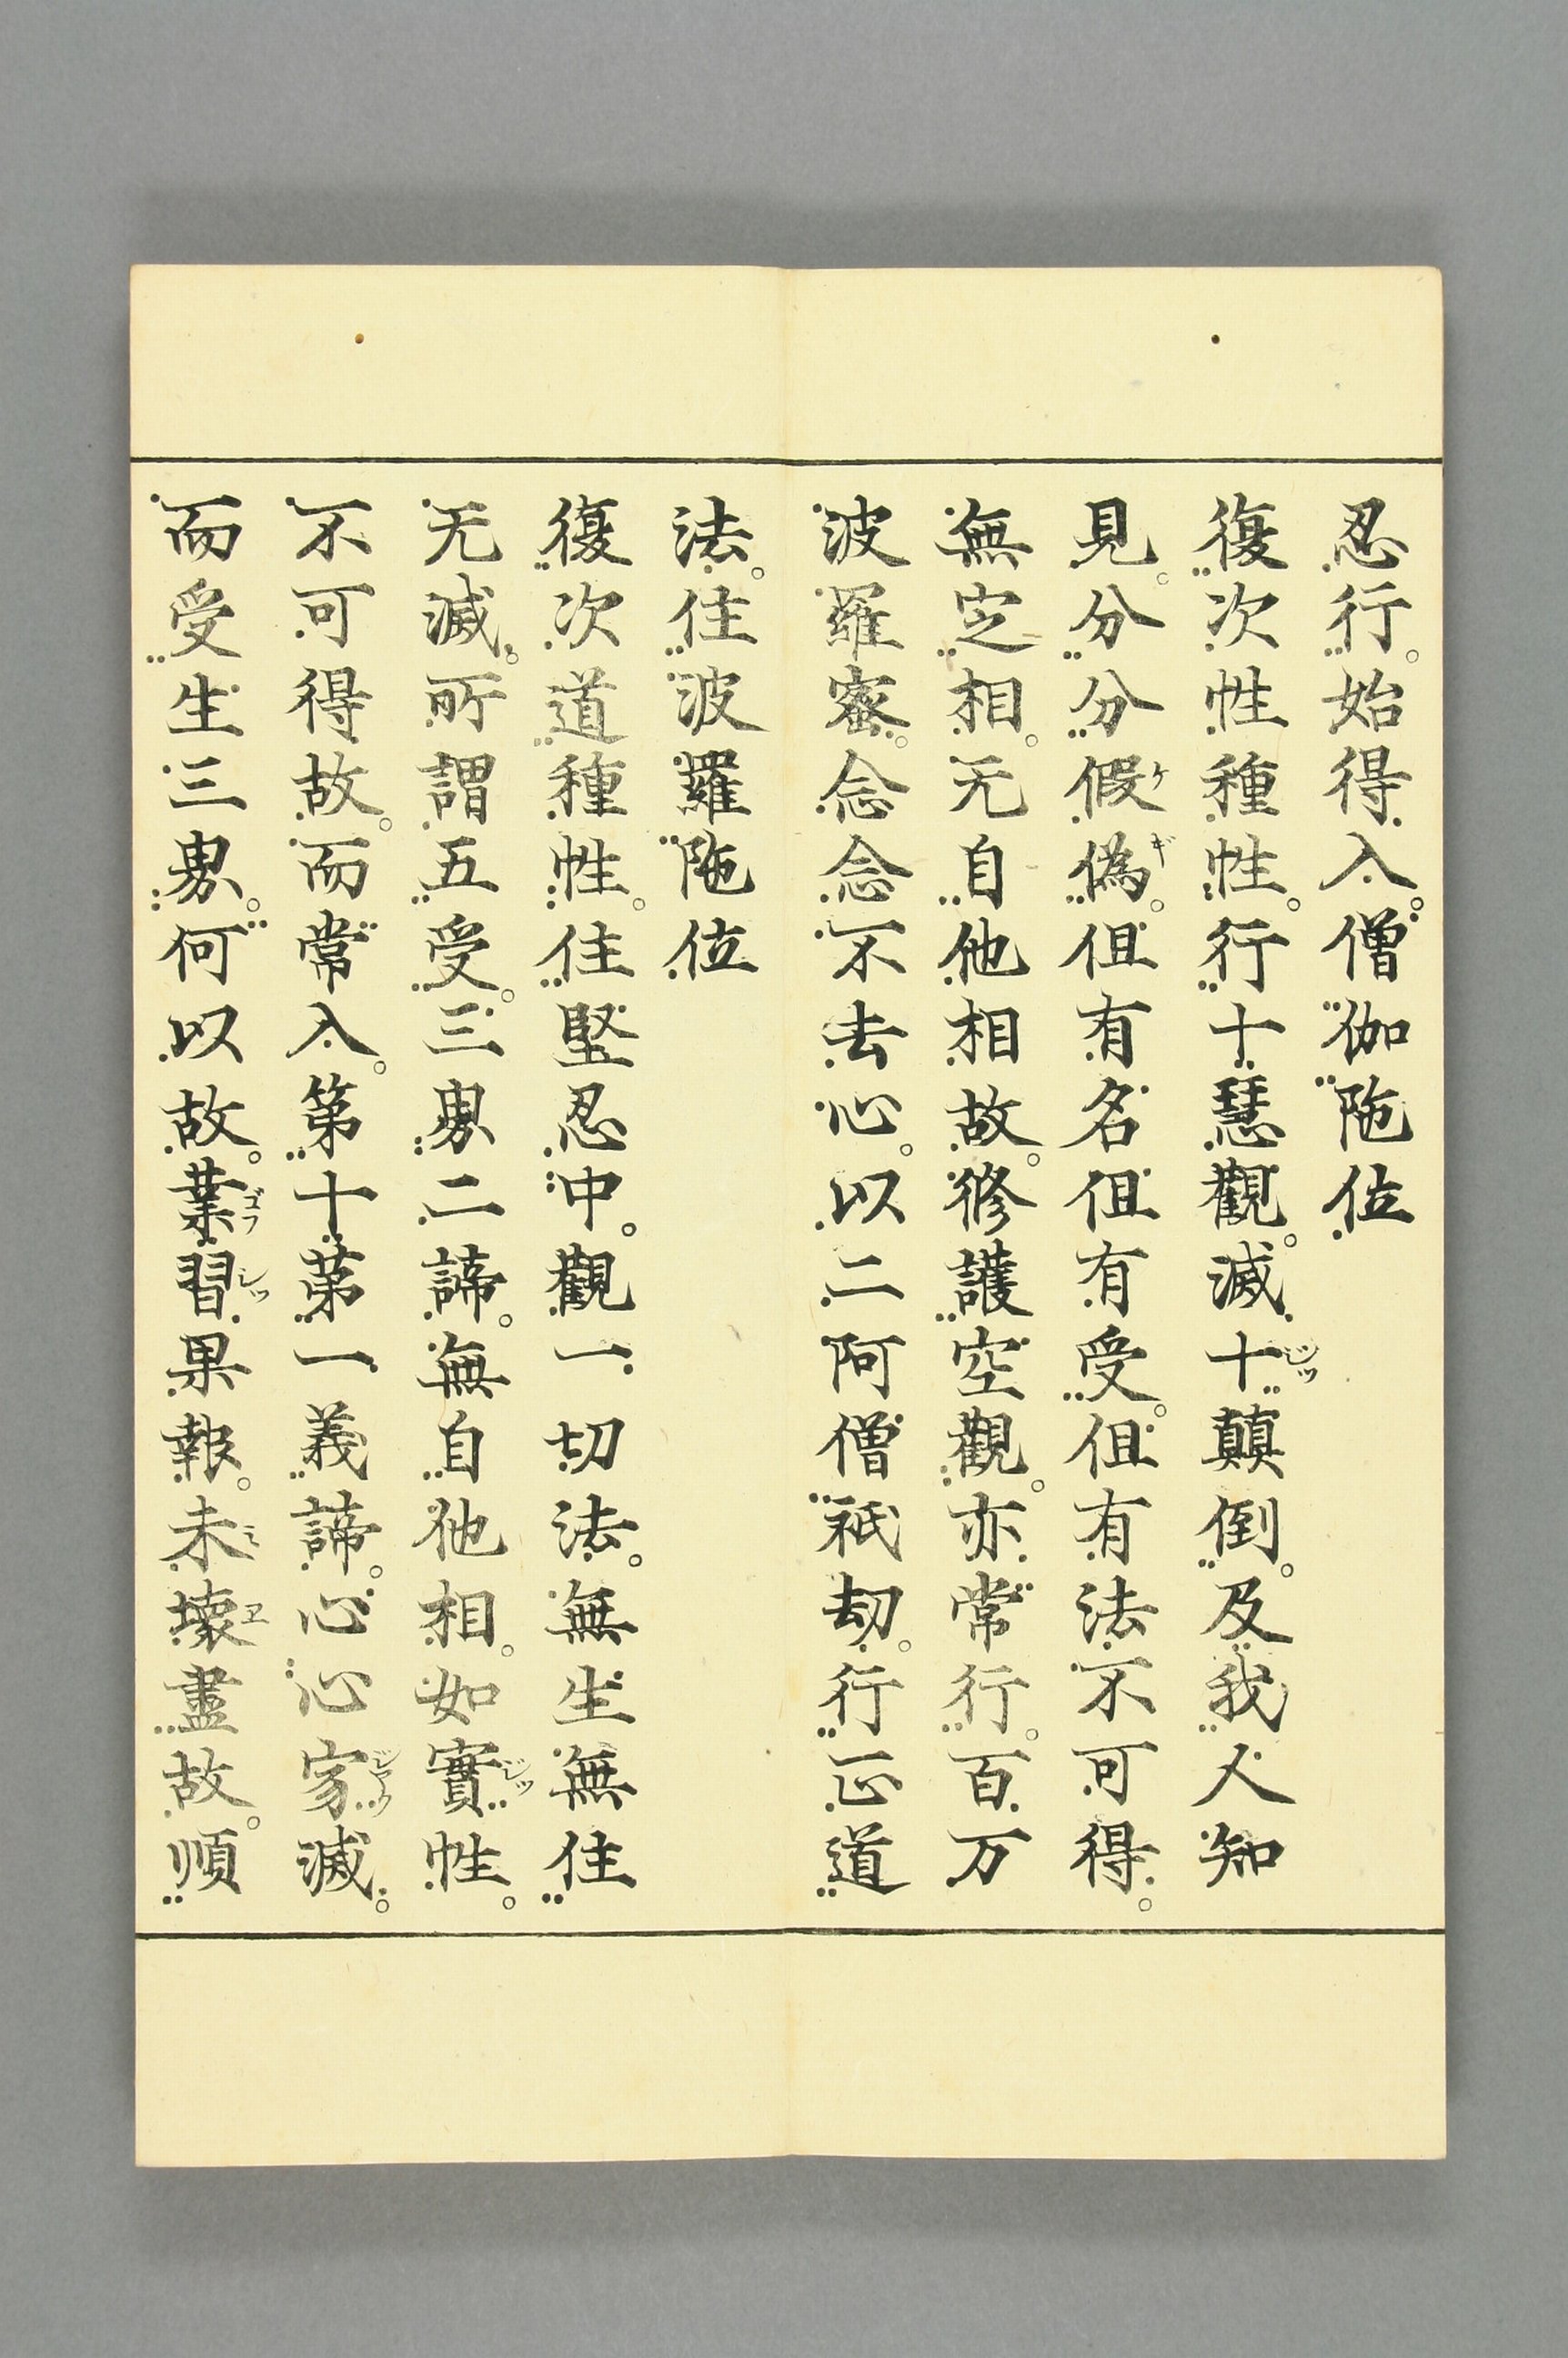 忍行。始得入。僧伽陁位
復次性種性。行十慧觀。滅十ジッ顛倒。及我人知
見。分分假ケ偽ギ。但有名但有受。但有法不可得。
無定相。无自他相故。修護空觀。亦常行。百万
波羅蜜。念念不去心。以二阿僧祇劫。行正道
法。住波羅陁位
復次道種性。住堅忍中。觀一切法。無生無住
无滅。所謂五受。三界二諦。無自他相。如實ジッ性。
不可得故。而常入。第十第一義諦。心心寂ジャク滅。
而受生三界。何以故。業ゴフ習シッ果報。未ミ壊ヱ盡故。順